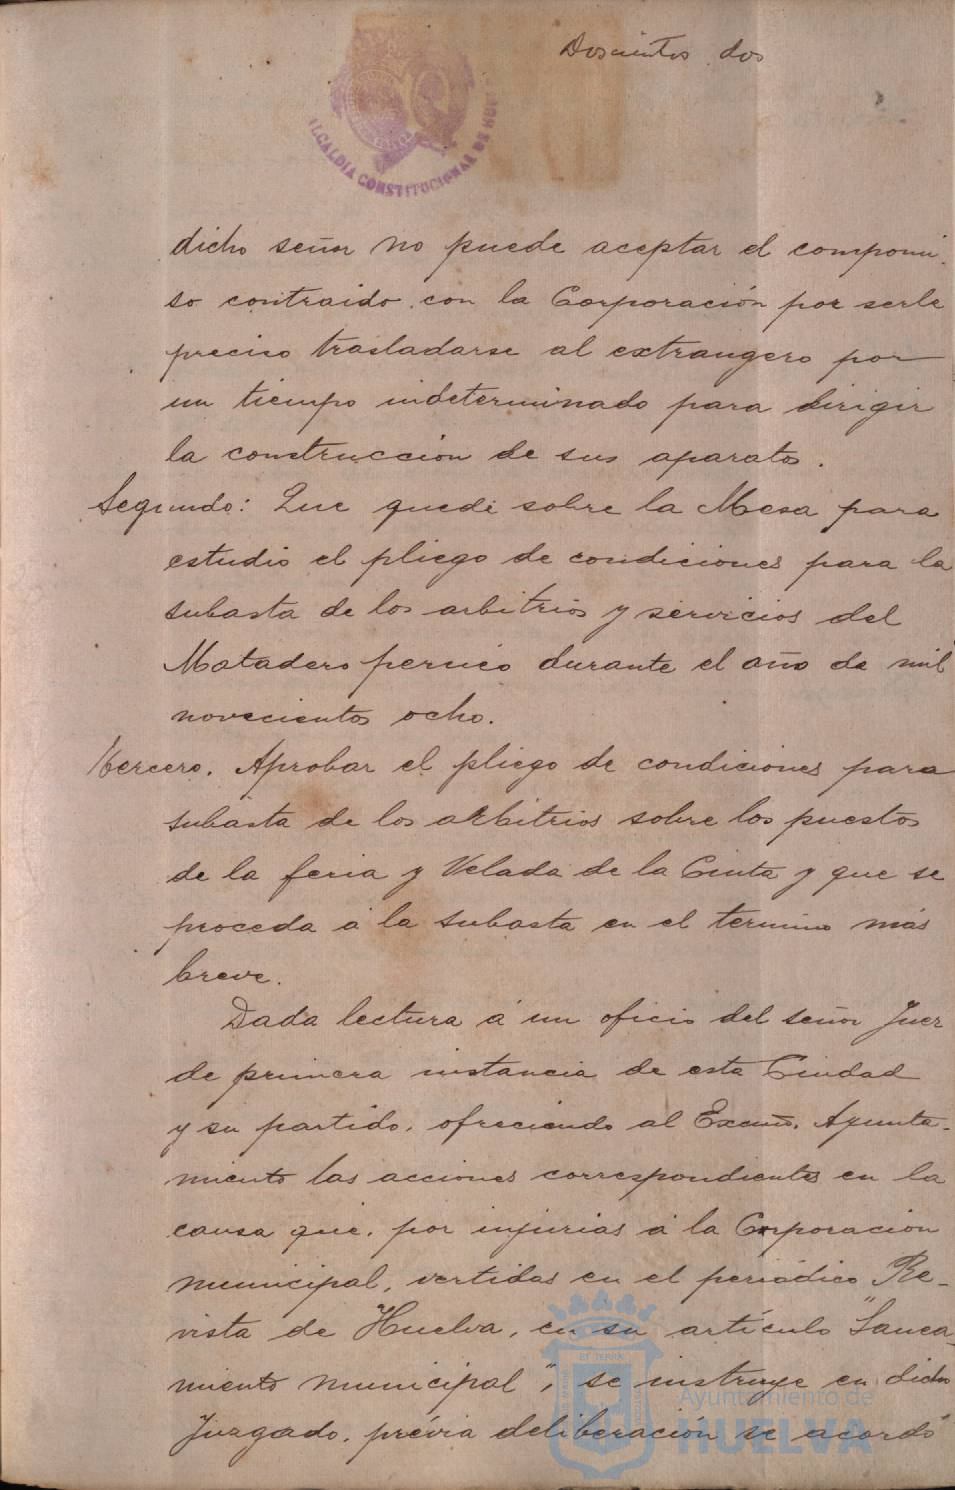 Doscientos dos
ALCALDIA CONSTITUCIONAL DE HU
dicho señor no puede aceptar el compomi-
so contraido con la Corporación por serle
preciso trasladarse al extrangero por
un tiempo indeterminado para dirigir
la construcción de sus aparatos.
Segundo: Que quede sobre la Mesa para
estudio el pliego de condiciones para la
subasta de los arbitrios y servicios del
Matadero pernico durante el año de mil
novecientos ocho.
Tercero. Aprobar el pliego de condiciones para
subasta de los arbitrios sobre los puestos
de la feria y Velada de la Cinta y que se
proceda á la subasta en el termino más
breve.
Dada lectura á un oficio del señor Juez
de primera instancia de esta Ciudad
y su partido, ofreciendo al Excmo. Ayunta-
miento las acciones correspondientes en la
causa que, por injurias á la Corporación
municipal, vertidas en el periódico Re-
vista de Huelva, en su artículo "Sanea-
miento municipal", se instruye en dicho
Juzgado, prévia deliberación se acordó
Ayuntamiento de
HUELVA